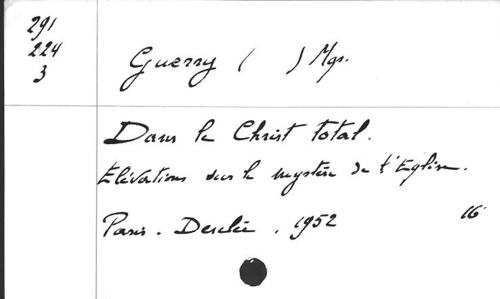 291
224
3
Guerry ( ) Mgr.
Dans le Christ total.
Elévations sur le mystère de l'Eglise.
Paris. Desclée. 1952 16